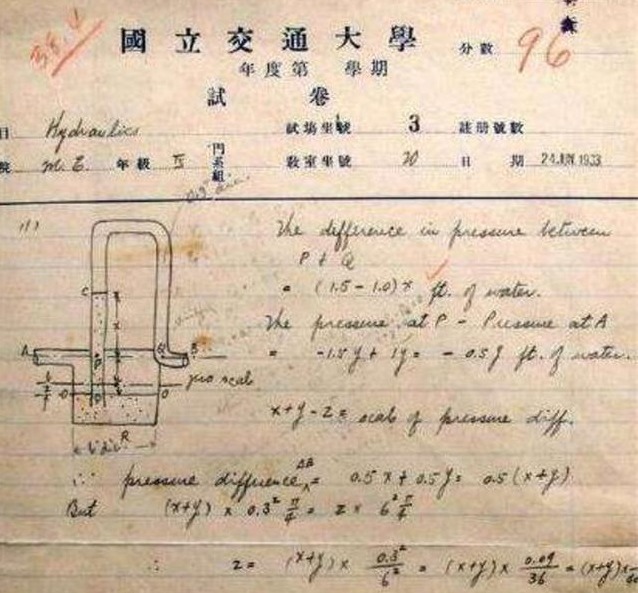 38.4
國立交通大學
分數 96
年度第 學期
試卷
目 Hydraulics 試場坐號 3 註册號數
院 M.E. 年級 IV 門系組 教室坐號 20 日期 24 JUN 1933
0.3" dia.
(1) The difference in pressure between
P & Q
= (1.5 - 1.0) x ft. of water.
The pressure at P - Pressure at A
= -1.5y + 1y = -0.5y ft. of water.
x+y-z = scale of pressure diff.
C
A
P
B
zero scale
O
O
R
6" dia
∴ pressure difference AB = 0.5x + 0.5y = 0.5(x+y)
But (x+y) x 0.3² π/4 = z x 6² π/4
∴ z = (x+y) x 0.3²/6² = (x+y) x 0.09/36 = (x+y) x